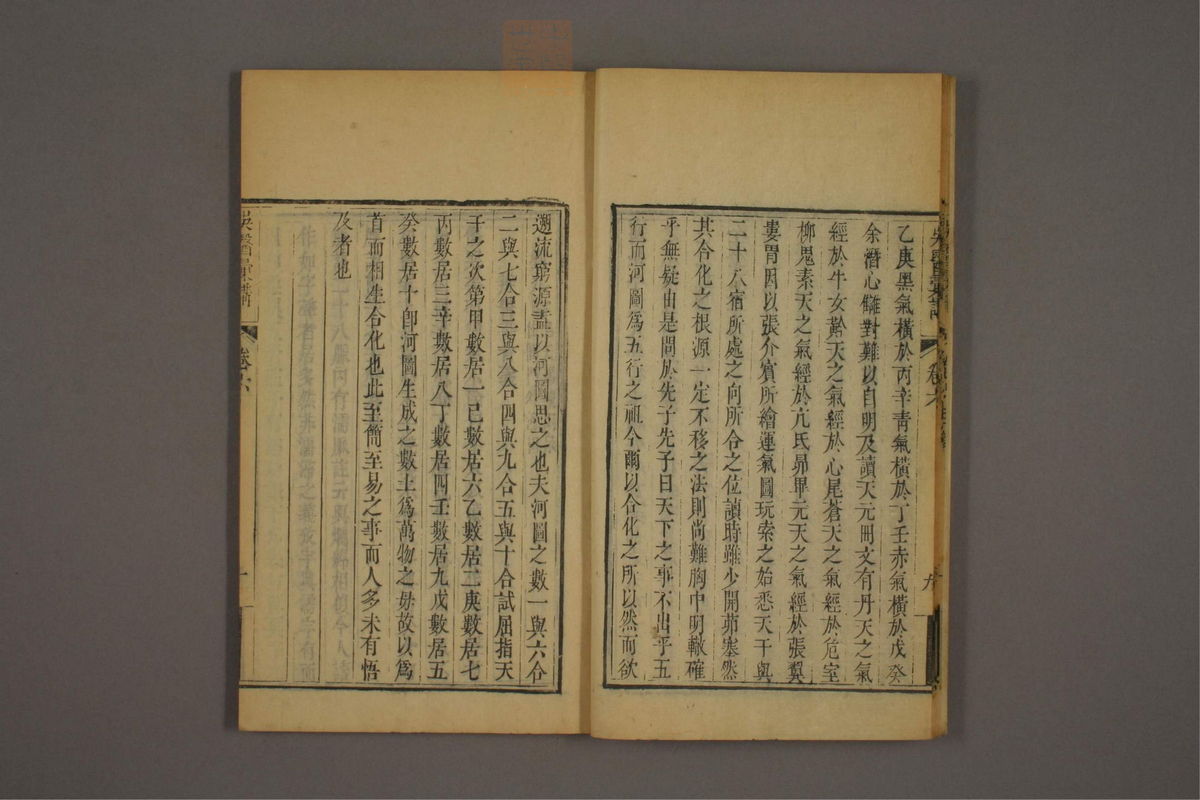 乙庚黑氣橫於丙辛青氣橫於丁壬赤氣橫於戊癸
余潛心讎對難以自明及讀天元冊文有丹天之氣
經於牛女黅天之氣經於心尾蒼天之氣經於危室
柳鬼素天之氣經於亢氐昴畢元天之氣經於張翼
婁胃因以張介賓所繪運氣圖玩索之始悉天干與
二十八宿所處之向所合之位讀時雖少開茆塞然
其合化之根源一定不移之法則尚難胸中明轍確
乎無疑由是問於先子先子曰天下之事不出乎五
行而河圖為五行之祖今爾以合化之所以然而欲
遡流窮源盍以河圖思之也夫河圖之數一與六合
二與七合三與八合四與九合五與十合試屈指天
干之次第甲數居一己數居六乙數居二庚數居七
丙數居三辛數居八丁數居四壬數居九戊數居五
癸數居十卽河圖生成之數土爲萬物之母故以爲
首而相生合化也此至簡至易之事而人多未有悟
及者也
吳醫彙講
卷六